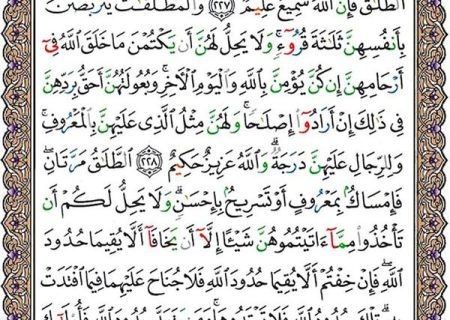 ٱلطَّلَٰقَ فَإِنَّ ٱللَّهَ سَمِيعٌ عَلِيمٌ ٢٢٧ وَٱلْمُطَلَّقَٰتُ يَتَرَبَّصْنَ
بِأَنفُسِهِنَّ ثَلَٰثَةَ قُرُوٓءٍ ۚ وَلَا يَحِلُّ لَهُنَّ أَن يَكْتُمْنَ مَا خَلَقَ ٱللَّهُ فِىٓ
أَرْحَامِهِنَّ إِن كُنَّ يُؤْمِنَّ بِٱللَّهِ وَٱلْيَوْمِ ٱلْءَاخِرِ ۚ وَبُعُولَتُهُنَّ أَحَقُّ بِرَدِّهِنَّ
فِى ذَٰلِكَ إِنْ أَرَادُوٓا۟ إِصْلَٰحًا ۚ وَلَهُنَّ مِثْلُ ٱلَّذِى عَلَيْهِنَّ بِٱلْمَعْرُوفِ ۚ
وَلِلرِّجَالِ عَلَيْهِنَّ دَرَجَةٌ ۗ وَٱللَّهُ عَزِيزٌ حَكِيمٌ ٢٢٨ ٱلطَّلَٰقُ مَرَّتَانِ ۖ
فَإِمْسَاكٌۢ بِمَعْرُوفٍ أَوْ تَسْرِيحٌۢ بِإِحْسَٰنٍ ۗ وَلَا يَحِلُّ لَكُمْ أَن
تَأْخُذُوا۟ مِمَّآ ءَاتَيْتُمُوهُنَّ شَيْـًٔا إِلَّآ أَن يَخَافَآ أَلَّا يُقِيمَا حُدُودَ
ٱللَّهِ ۖ فَإِنْ خِفْتُمْ أَلَّا يُقِيمَا حُدُودَ ٱللَّهِ فَلَا جُنَاحَ عَلَيْهِمَا فِيمَا ٱفْتَدَتْ